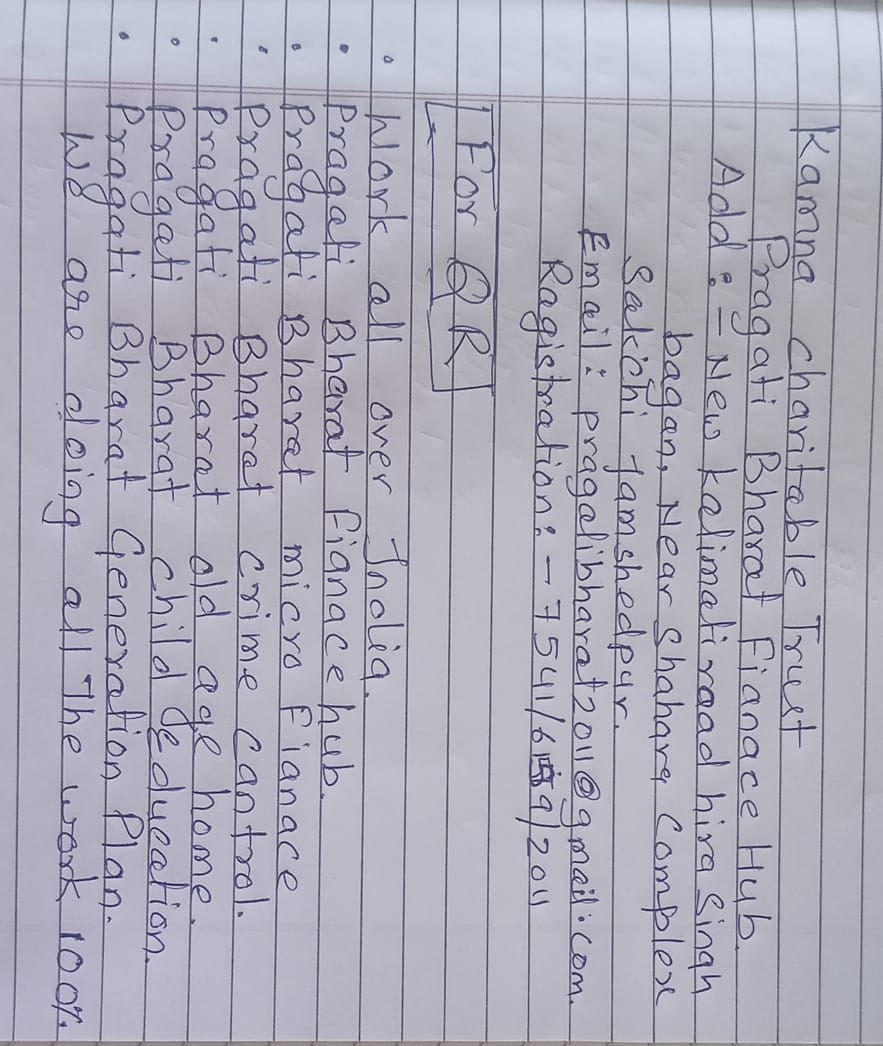 Kamna charitable Trust
Pragati Bharat Fianace Hub.
Add :- New kalimati raad hira Singh
bagan, Near Shahara Complex
Sakchi Jamshedpur.
Email : pragatibharat2011@gmail.com.
Ragistration :- 7541/ /2011
For QR
• Work all over India.
• Pragati Bharat fianace hub.
• Pragati Bharat micro Fianace
• Pragati Bharat crime cantrol.
• Pragati Bharat old age home.
• Pragati Bharat child education.
• Pragati Bharat Generation Plan.
We are doing all The work 100%.